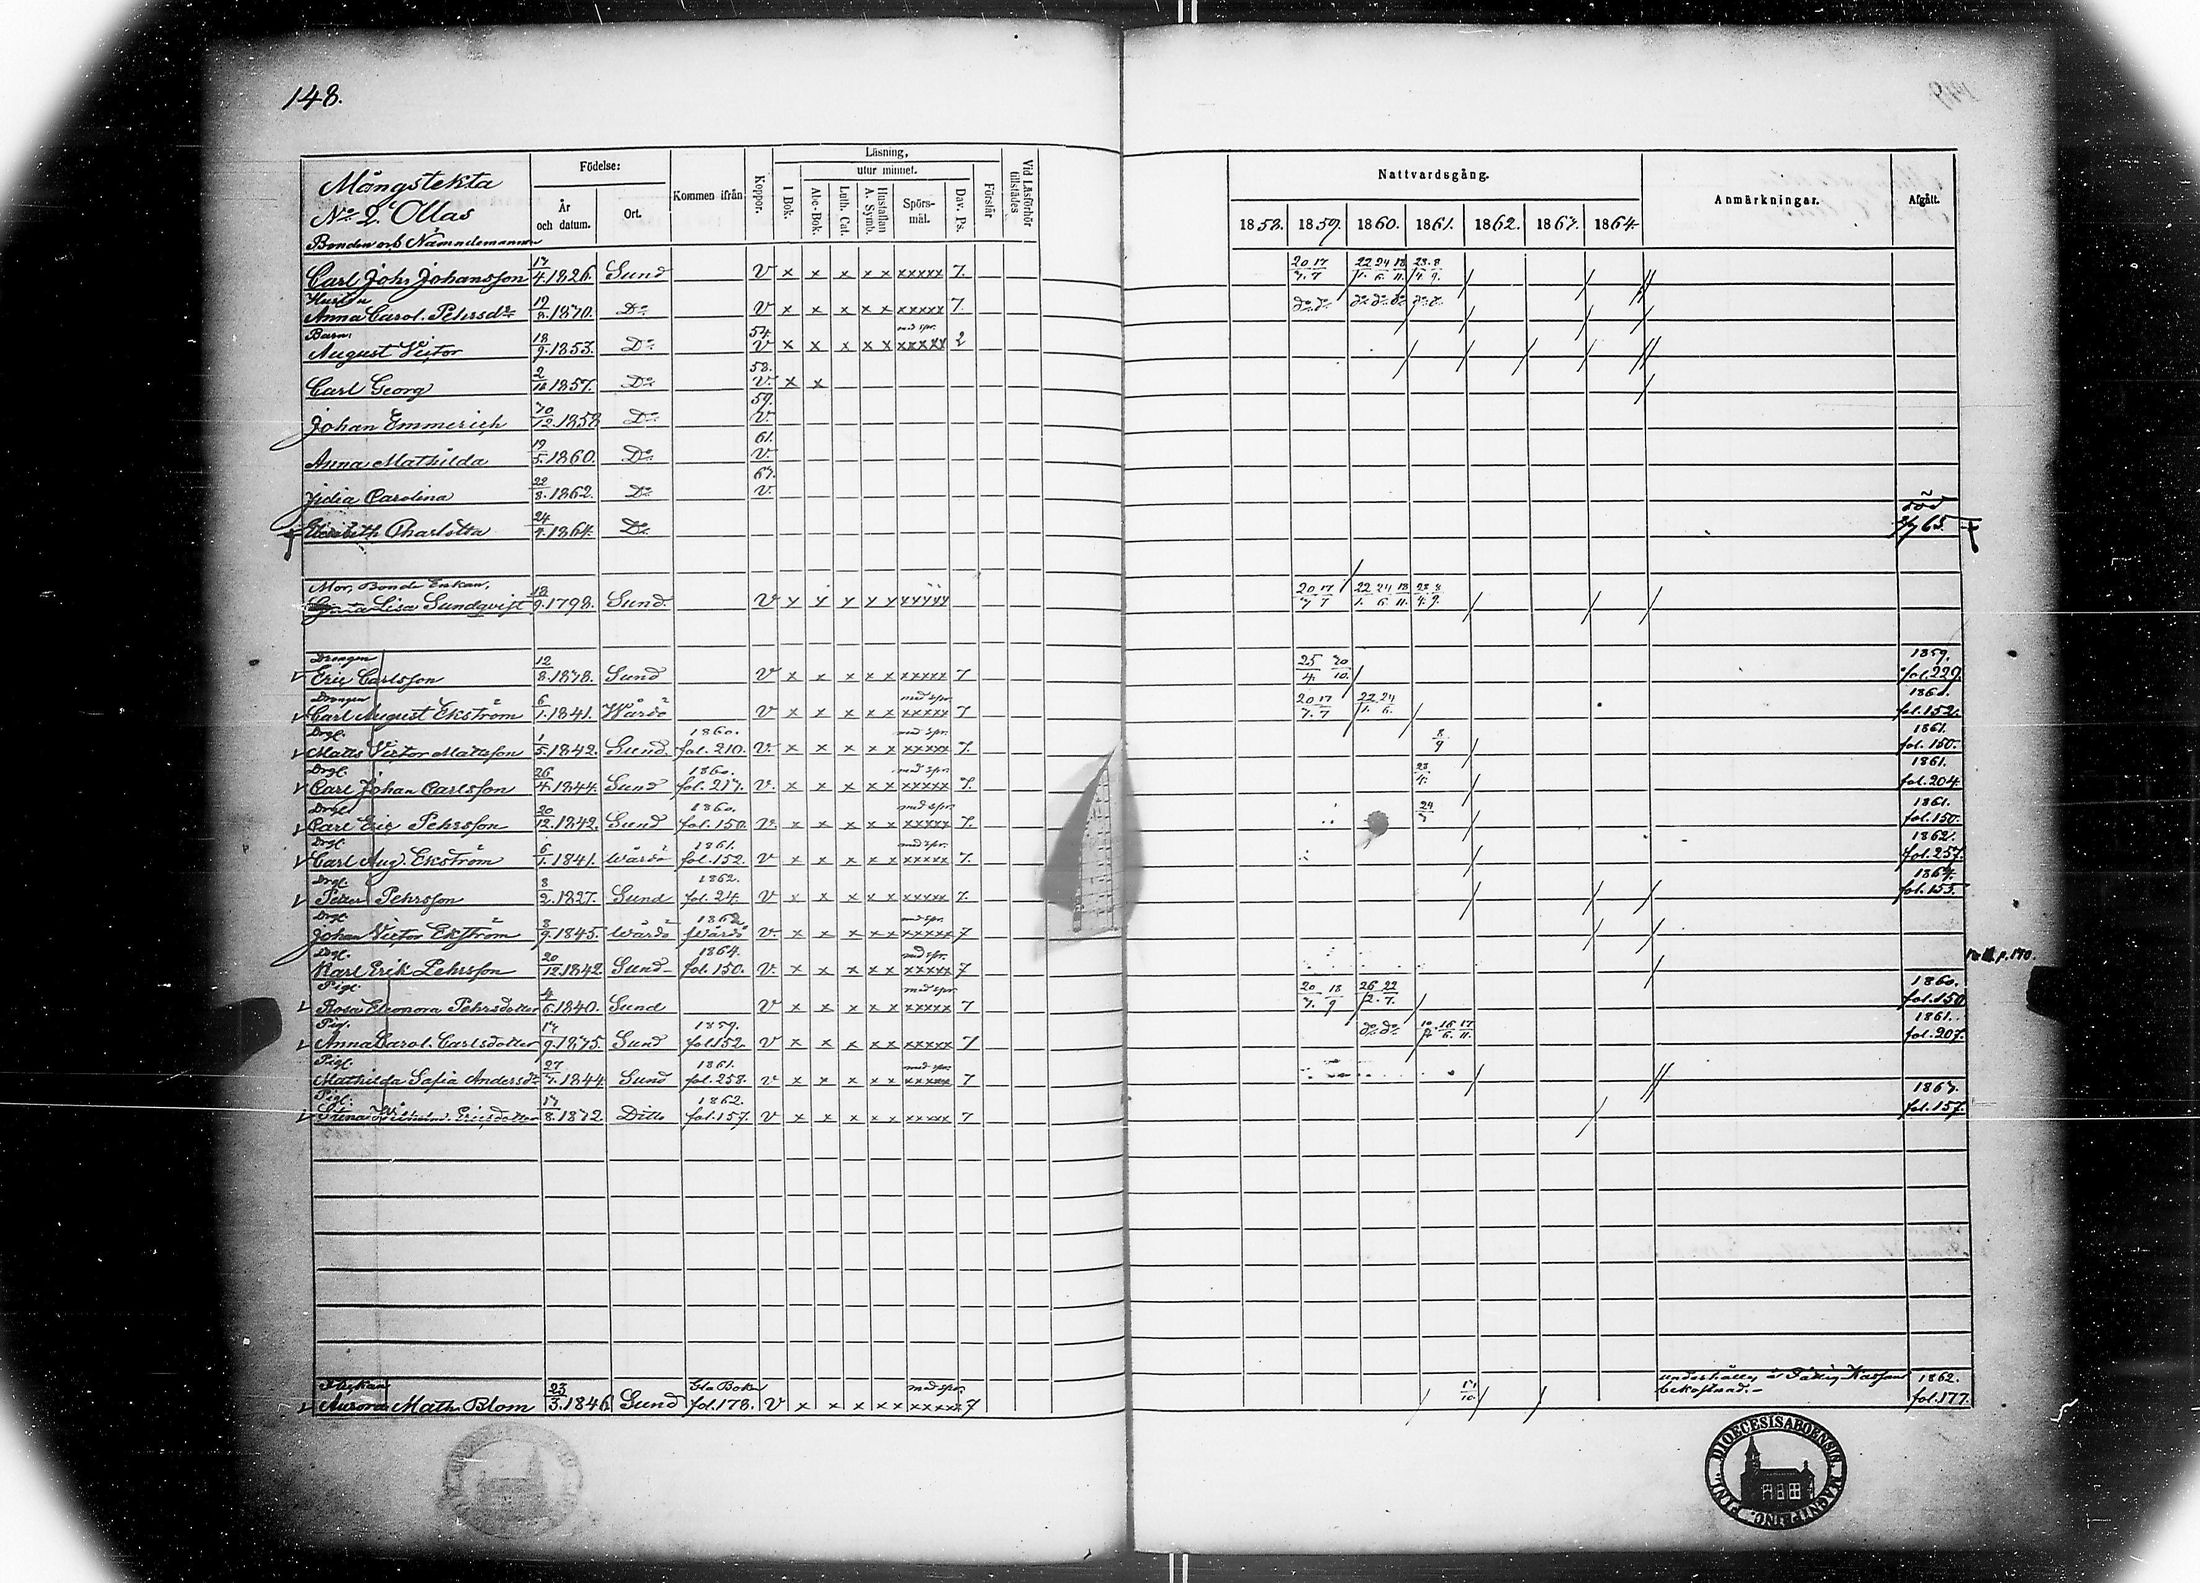 148.
Mångstekta
No 2. Ollas
Födelse:
År och datum.
Ort.
Kommen ifrån
Koppor.
Läsning,
I Bok.
utur minnet.
Abc-Bok.
Luth. Cat.
Hustaflan A. Symb.
Spörsmål.
Dav. Ps.
Förstår
Vid Läsförhör tillstädes
Nattvardsgång.
1858. 1859. 1860. 1861. 1862. 1863. 1864.
Anmärkningar.
Afgått.
Bonden och Nämndemannen
Carl Joh: Johansson 13/4.1826. Sund V x x x x x xxxxx 7. 20/3. 17/7 22/1. 24/6. 18/11. 28/4. 8/9.
Hustru
Anna Carol. Pehrsdr 19/8.1830. Do V x x x x x xxxxx 7. do do do do do do do
Barn: 54. med spr.
August Victor 18/9.1853. Do V x x x x x xxxxx 2
58.
Carl Georg 2/10 1857. Do V. x x
59.
Johan Emmerich 30/12.1858 Do V.
61.
Anna Mathilda 19/5.1860. Do V.
63.
Fidia Carolina 22/8.1862. Do V.
Elisabeth Charlotta 24/4.1864. Do död 2/7 65.
Mor, Bonde Enkan,
Lisa Sundqvist 18/9.1798. Sund. V x x x x x xxxxx 20/3 17/7 22/1. 24/6. 18/11. 28/4. 8/9.
Drengen 1859.
Eric Carlsson 12/8.1838. Sund V x x x x x xxxxx 7 25/4. 30/10. fol. 229.
Drengen med spr. 1860.
Carl August Ekström 6/1.1841. Wårdö V x x x x x xxxxx 7 20/3. 17/7 22/1. 24/6. fol. 152.
Drgl. 1860. med spr. 1861.
Matts Victor Mattsson 1/5.1842. Sund. fol. 210. V. x x x x x xxxxx 7. 8/9 fol. 150.
Drgl. 1860. med spr. 1861.
Carl Johan Carlsson 26/4.1844. Sund fol. 213. V. x x x x x xxxxx 7. 28/4. fol. 204.
Drgl 1860. med spr. 1861.
Carl Eric Pehrsson 20/12.1842. Sund fol. 150. V. x x x x x xxxxx 7. 24/3 fol. 150.
Drgl. 1861. med spr. 1862.
Carl Aug. Ekström 6/1.1841. Wårdö fol. 152. V x x x x x xxxxx 7. fol. 257.
Drgl. 1862. 1864.
Petter Pehrsson 8/2.1827. Sund fol. 24. V x x x x x xxxxx 7. fol. 153.
Drgl. 1862 med spr.
Johan Victor Ekström 8/9.1845. Wårdö Wårdö V. x x x x x xxxxx 7
Drgl. 1864. med spr.
Karl Erik Pehrsson 20/12 1842. Sund fol. 150. V. x x x x x xxxxx 7 p. 170.
Pigl. med spr. 1860.
Rosa Eleonora Pehrsdotter 4/6.1840. Sund V x x x x x xxxxx 7 20/3. 18/9 26/2. 22/7. fol. 150
Pigl. 1859. 1861.
Anna Carol. Carlsdotter 13/9.1835. Sund fol 152 V x x x x x xxxxx 7 do do 16/6. 17/11. fol. 207.
Pigl. 1861. med spr.
Mathilda Sofia Andersdr 27/3.1844 Sund fol. 258. V x x x x x xxxxx 7
Pigl. 1862. 1863.
Stina Wilhelm. Ericsdotter 13/8.1832 Ditto fol. 157. V x x x x x xxxxx 7 fol. 157.
Flickan Gla Boken med spr. underhålles å Fattig Kassans 1862.
Aurora Math. Blom 23/3.1846 Sund fol. 178. V x x x x x xxxxx 7 13/10. bekostnad.- fol. 177.
DIOECESIS ABOENSIS. MAGNI PRINC. FINL.